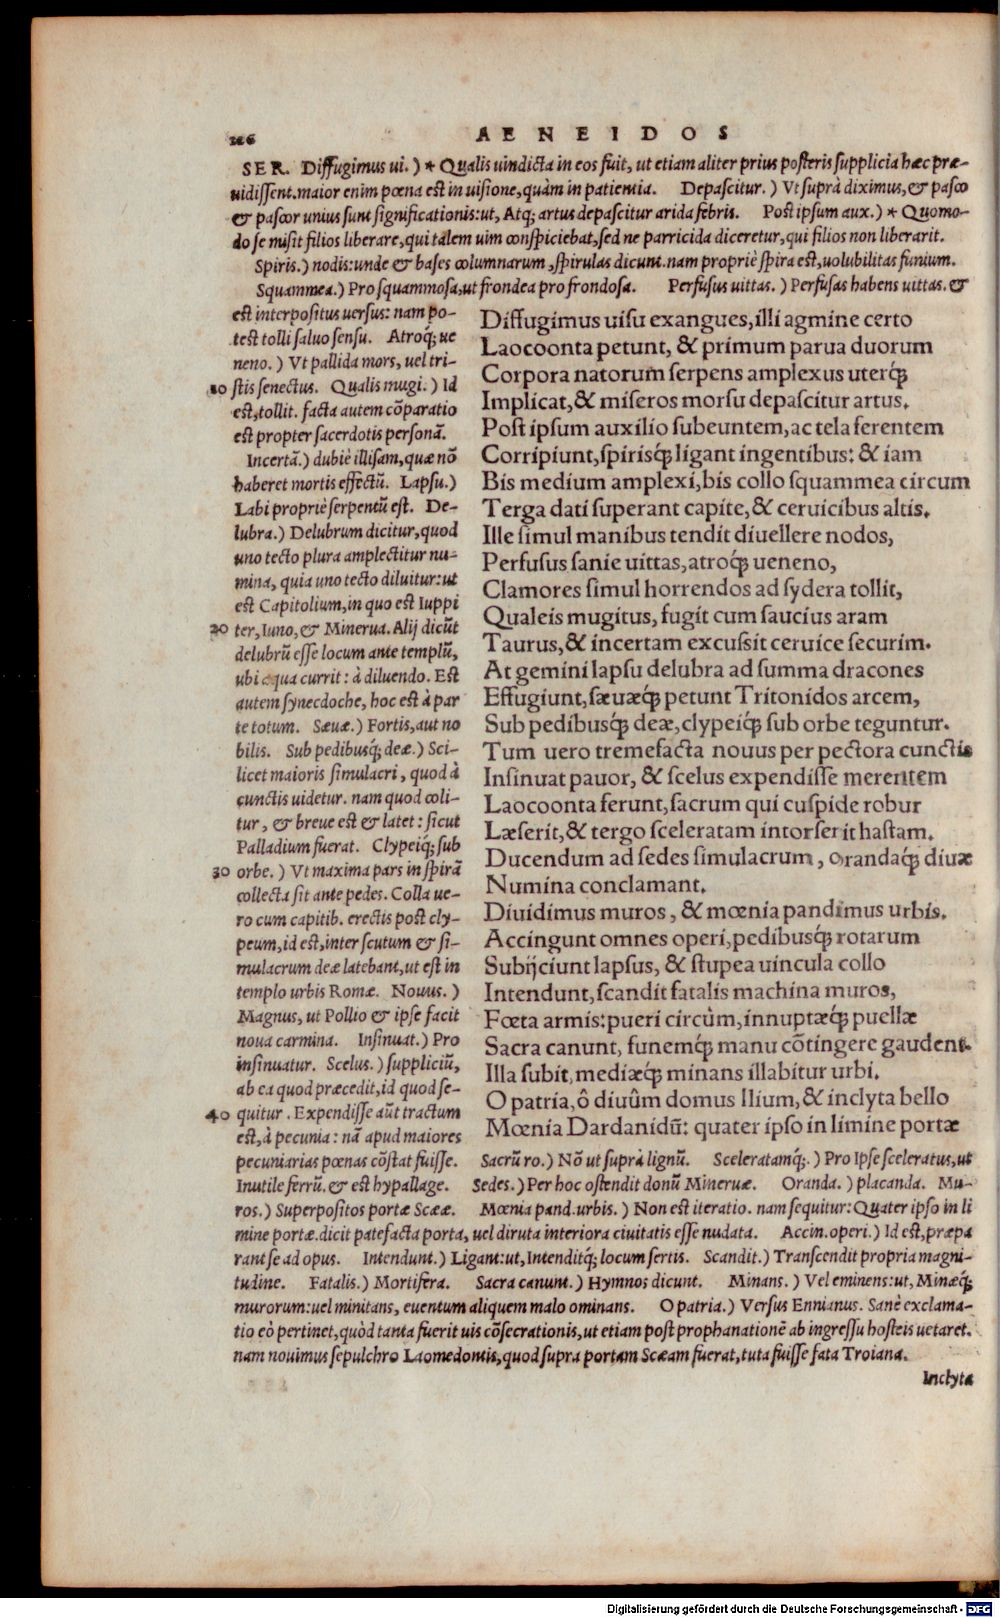 226
AENEIDOS
SER. Diffugimus ui.) * Qualis uindicta in eos fuit, ut etiam aliter prius posteris supplicia hæc præ-
uidissent. maior enim pœna est in uisione, quàm in patientia. Depascitur.) Vt suprà diximus, & pasco
& pascor unius sunt significationis: ut, Atq; artus depascitur arida febris. Post ipsum aux.) * Quomo-
do se misit filios liberare, qui talem uim conspiciebat, sed ne parricida diceretur, qui filios non liberarit.
Spiris.) nodis: unde & bases columnarum, spirulas dicunt. nam propriè spira est, uolubilitas funium.
Squammea.) Pro squammosa, ut frondea pro frondosa. Perfusus uittas.) Perfusas habens uittas. &
est interpositus uersus: nam po-
test tolli saluo sensu. Atroq́; ue
neno.) Vt pallida mors, uel tri-
10 stis senectus. Qualis mugi.) Id
est, tollit. facta autem cōparatio
est propter sacerdotis personā.
Incertā.) dubiè illisam, quæ nō
haberet mortis effectū. Lapsu.)
Labi propriè serpentū est. De-
lubra.) Delubrum dicitur, quod
uno tecto plura amplectitur nu-
mina, quia uno tecto diluitur: ut
est Capitolium, in quo est Iuppi
20 ter, Iuno, & Minerua. Alij dicūt
delubrū esse locum ante templū,
ubi aqua currit: à diluendo. Est
autem synecdoche, hoc est à par
te totum. Sæuæ.) Fortis, aut no
bilis. Sub pedibusq́; deæ.) Sci-
licet maioris simulacri, quod à
cunctis uidetur. nam quod coli-
tur, & breue est & latet: sicut
Palladium fuerat. Clypeiq́; sub
30 orbe.) Vt maxima pars in spirā
collecta sit ante pedes. Colla ue-
ro cum capitib. erectis post cly-
peum, id est, inter scutum & si-
mulacrum deæ latebant, ut est in
templo urbis Romæ. Nouus.)
Magnus, ut Pollio & ipse facit
noua carmina. Insinuat.) Pro
insinuatur. Scelus.) suppliciū,
ab ea quod præcedit, id quod se-
40 quitur. Expendisse aūt tractum
est, à pecunia: nā apud maiores
pecuniarias pœnas cōstat fuisse.
Inutile ferrū. & est hypallage.
Diffugimus uisu exangues, illi agmine certo
Laocoonta petunt, & primum parua duorum
Corpora natorum serpens amplexus uterq́;
Implicat, & miseros morsu depascitur artus.
Post ipsum auxilio subeuntem, ac tela ferentem
Corripiunt, spirisq́; ligant ingentibus: & iam
Bis medium amplexi, bis collo squammea circum
Terga dati superant capite, & ceruicibus altis.
Ille simul manibus tendit diuellere nodos,
Perfusus sanie uittas, atroq́; ueneno,
Clamores simul horrendos ad sydera tollit,
Qualeis mugitus, fugit cum saucius aram
Taurus, & incertam excussit ceruice securim.
At gemini lapsu delubra ad summa dracones
Effugiunt, sæuæq́; petunt Tritonidos arcem,
Sub pedibusq́; deæ, clypeiq́; sub orbe teguntur.
Tum uero tremefacta nouus per pectora cunctis
Insinuat pauor, & scelus expendisse merentem
Laocoonta ferunt, sacrum qui cuspide robur
Læserit, & tergo sceleratam intorserit hastam.
Ducendum ad sedes simulacrum, orandaq́; diuæ
Numina conclamant.
Diuidimus muros, & mœnia pandimus urbis.
Accingunt omnes operi, pedibusq́; rotarum
Subijciunt lapsus, & stupea uincula collo
Intendunt, scandit fatalis machina muros,
Fœta armis: pueri circùm, innuptæq́; puellæ
Sacra canunt, funemq́; manu cōtingere gaudent.
Illa subit, mediæq́; minans illabitur urbi.
O patria, ô diuûm domus Ilium, & inclyta bello
Mœnia Dardanidū: quater ipso in limine portæ
Sacrū ro.) Nō ut suprà lignū. Sceleratamq́;.) Pro Ipse sceleratus, ut
Sedes.) Per hoc ostendit donū Mineruæ. Oranda.) placanda. Mu-
ros.) Superpositos portæ Scææ. Mœnia pand. urbis.) Non est iteratio. nam sequitur: Quater ipso in li
mine portæ. dicit patefacta porta, uel diruta interiora ciuitatis esse nudata. Accin. operi.) Id est, præpa
rant se ad opus. Intendunt.) Ligant: ut, Intenditq́; locum sertis. Scandit.) Transcendit propria magni-
tudine. Fatalis.) Mortifera. Sacra canunt.) Hymnos dicunt. Minans.) Vel eminens: ut, Minæq́;
murorum: uel minitans, euentum aliquem malo ominans. O patria.) Versus Ennianus. Sanè exclama-
tio eò pertinet, quòd tanta fuerit uis cōsecrationis, ut etiam post prophanationē ab ingressu hosteis uetaret.
nam nouimus sepulchro Laomedontis, quod supra portam Scæam fuerat, tuta fuisse fata Troiana.
Inclyta
Digitalisierung gefördert durch die Deutsche Forschungsgemeinschaft - DFG